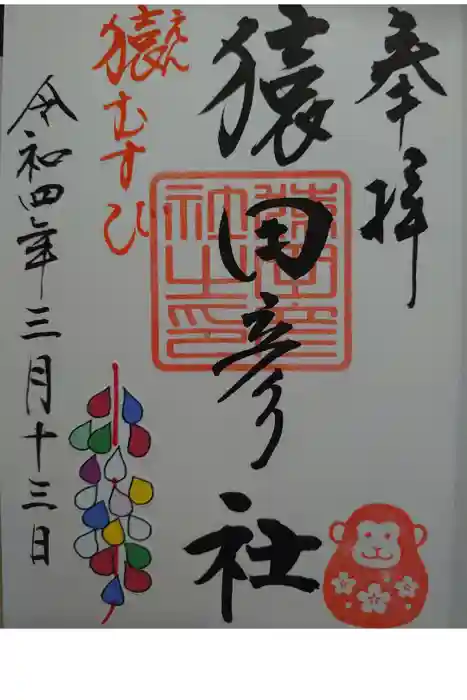 奉拝
猿田彦社
猿田彦社之印
猿むすひ
えん
令和四年三月十三日